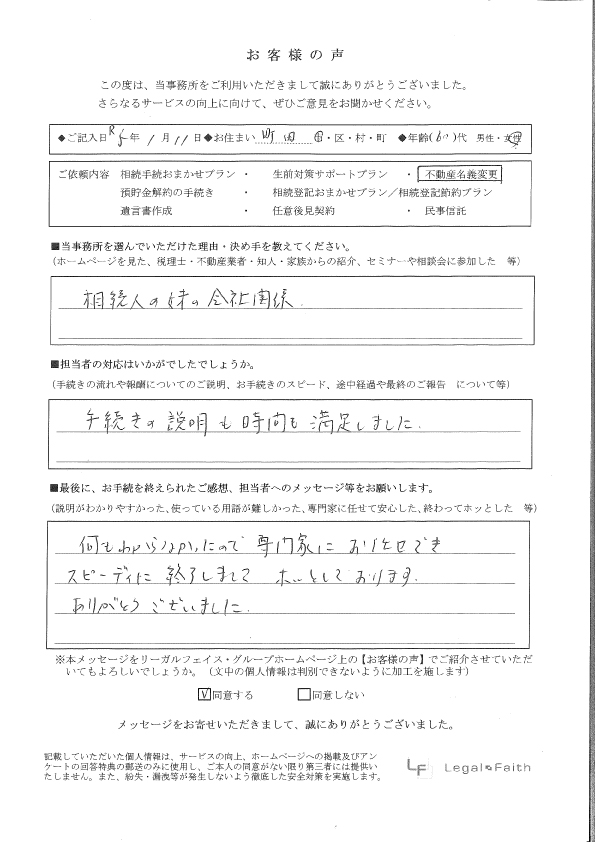 お客様の声
この度は、当事務所をご利用いただきまして誠にありがとうございました。
さらなるサービスの向上に向けて、ぜひご意見をお聞かせください。
◆ご記入日 R5年 1月 11日 ◆お住まい 町田 市・区・村・町 ◆年齢(60)代 男性・女性
ご依頼内容 相続手続おまかせプラン ・ 生前対策サポートプラン ・ 不動産名義変更
預貯金解約の手続き ・ 相続登記おまかせプラン／相続登記節約プラン
遺言書作成 ・ 任意後見契約 ・ 民事信託
■当事務所を選んでいただけた理由・決め手を教えてください。
（ホームページを見た、税理士・不動産業者・知人・家族からの紹介、セミナーや相談会に参加した 等）
相続人の妹の会社関係.
■担当者の対応はいかがでしたでしょうか。
（手続きの流れや報酬についてのご説明、お手続きのスピード、途中経過や最終のご報告 について等）
手続きの説明も時間も満足しました.
■最後に、お手続を終えられたご感想、担当者へのメッセージ等をお願いします。
（説明がわかりやすかった、使っている用語が難しかった、専門家に任せて安心した、終わってホッとした 等）
何もわからなかったので 専門家に お任せでき
スピーディに 終了しまして ホッとしております.
ありがとうございました.
※本メッセージをリーガルフェイス・グループホームページ上の【お客様の声】でご紹介させていただ
いてもよろしいでしょうか。（文中の個人情報は判別できないように加工を施します）
☑同意する □同意しない
メッセージをお寄せいただきまして、誠にありがとうございました。
記載していただいた個人情報は、サービスの向上、ホームページへの掲載及びアン
ケートの回答特典の郵送のみに使用し、ご本人の同意がない限り第三者には提供い
たしません。また、紛失・漏洩等が発生しないよう徹底した安全対策を実施します。
LF Legal Faith